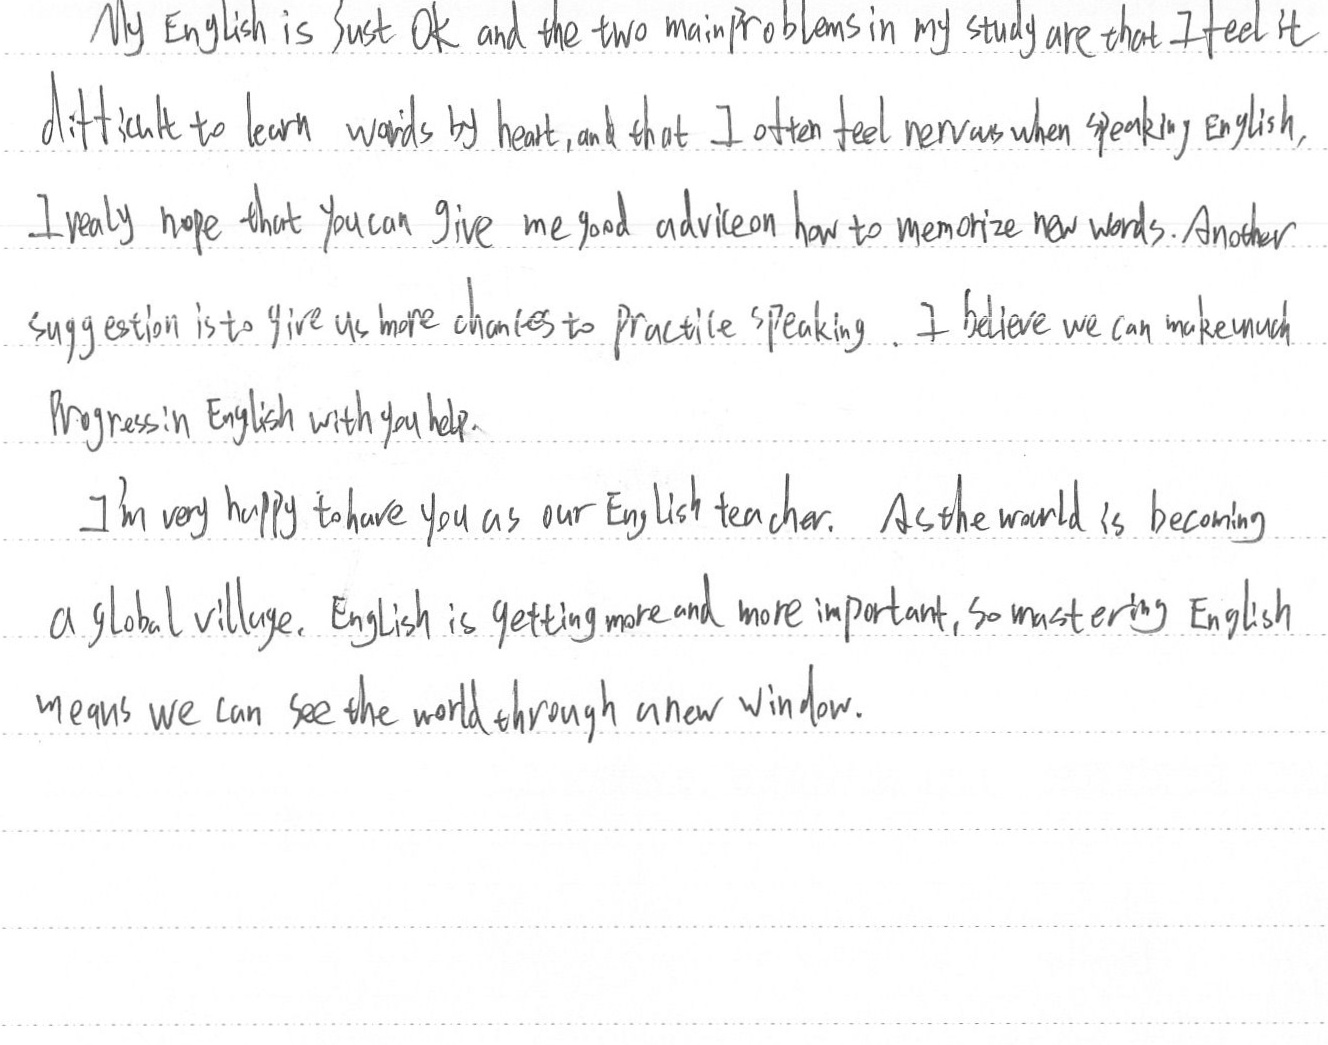 My English is Just Ok and the two main problems in my study are that I feel it
difficult to learn words by heart, and that I often feel nervous when speaking English,
I realy hope that you can give me good advice on how to memorize new words. Another
suggestion is to give us more chances to practice speaking. I believe we can make much
Progress in English with you help.
I'm very happy to have you as our English teacher. As the wourld is becoming
a global village. English is getting more and more important, so mastering English
means we can see the world through a new window.